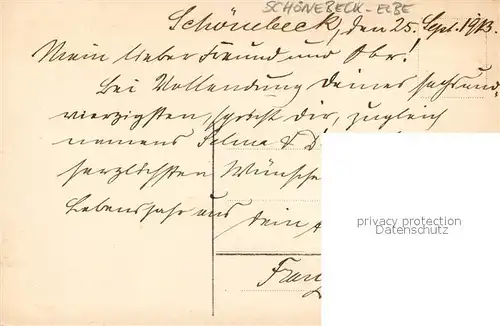 SCHÖNEBECK-ELBE
Schönebeck, den 25. Sept. 1913.
Mein lieber Freund und
Bei Vollendung Deines sechsund-
vierzigsten, spricht Dir, zugleich
namens Selma &
herzlichsten Wünsche
Lebensjahr aus Dein
privacy protection
Datenschutz
Franz